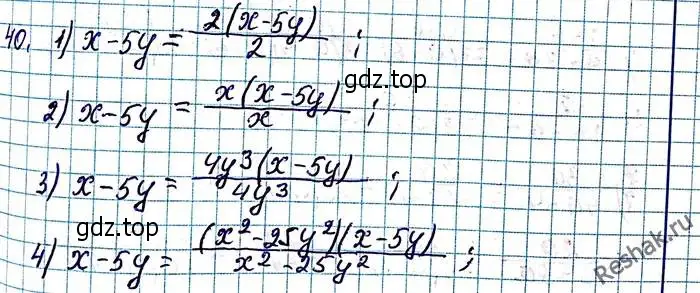 40. 1) x-5y = 2(x-5y)/2 ;
gdz.top
2) x-5y = x(x-5y)/x ;
3) x-5y = 4y³(x-5y)/4y³ ;
gdz.top
4) x-5y = (x²-25y²)(x-5y)/x²-25y² ;
Reshak.ru